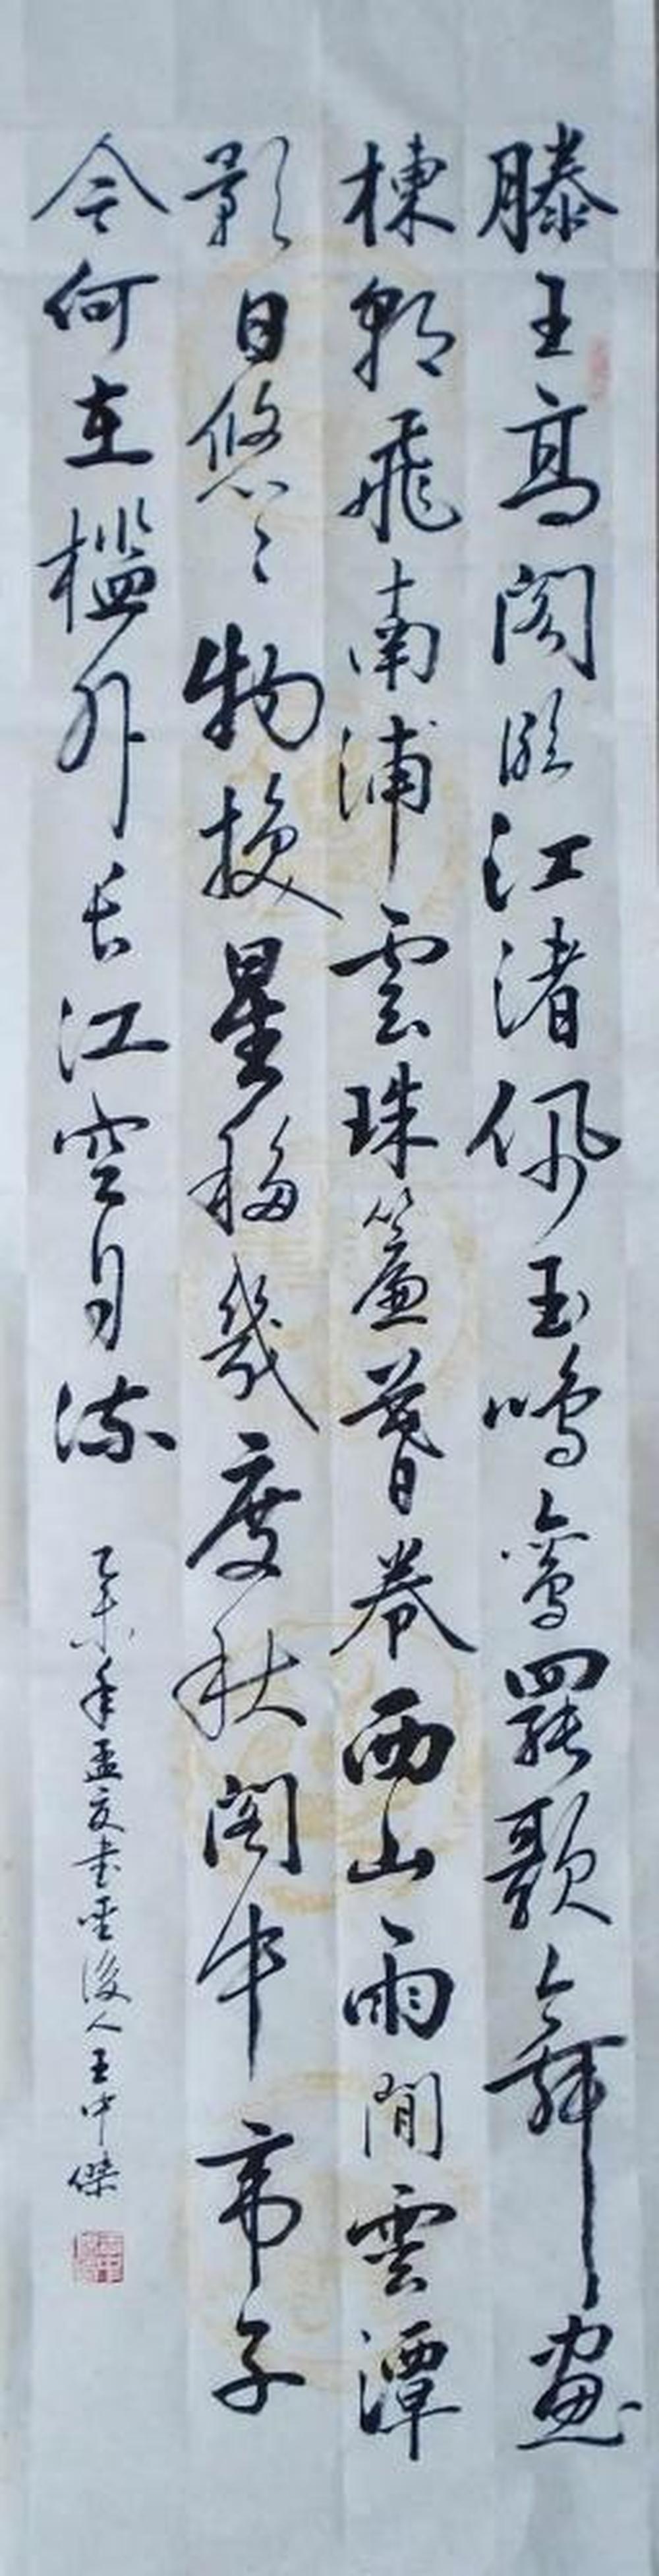 滕王高阁臨江渚佩玉鳴鸞罷歌舞畫
棟朝飛南浦雲珠簾暮卷西山雨閒雲潭
影日悠〻物换星移幾度秋阁中帝子
今何在檻外长江空自流
乙未年孟夏书聖後人王中傑